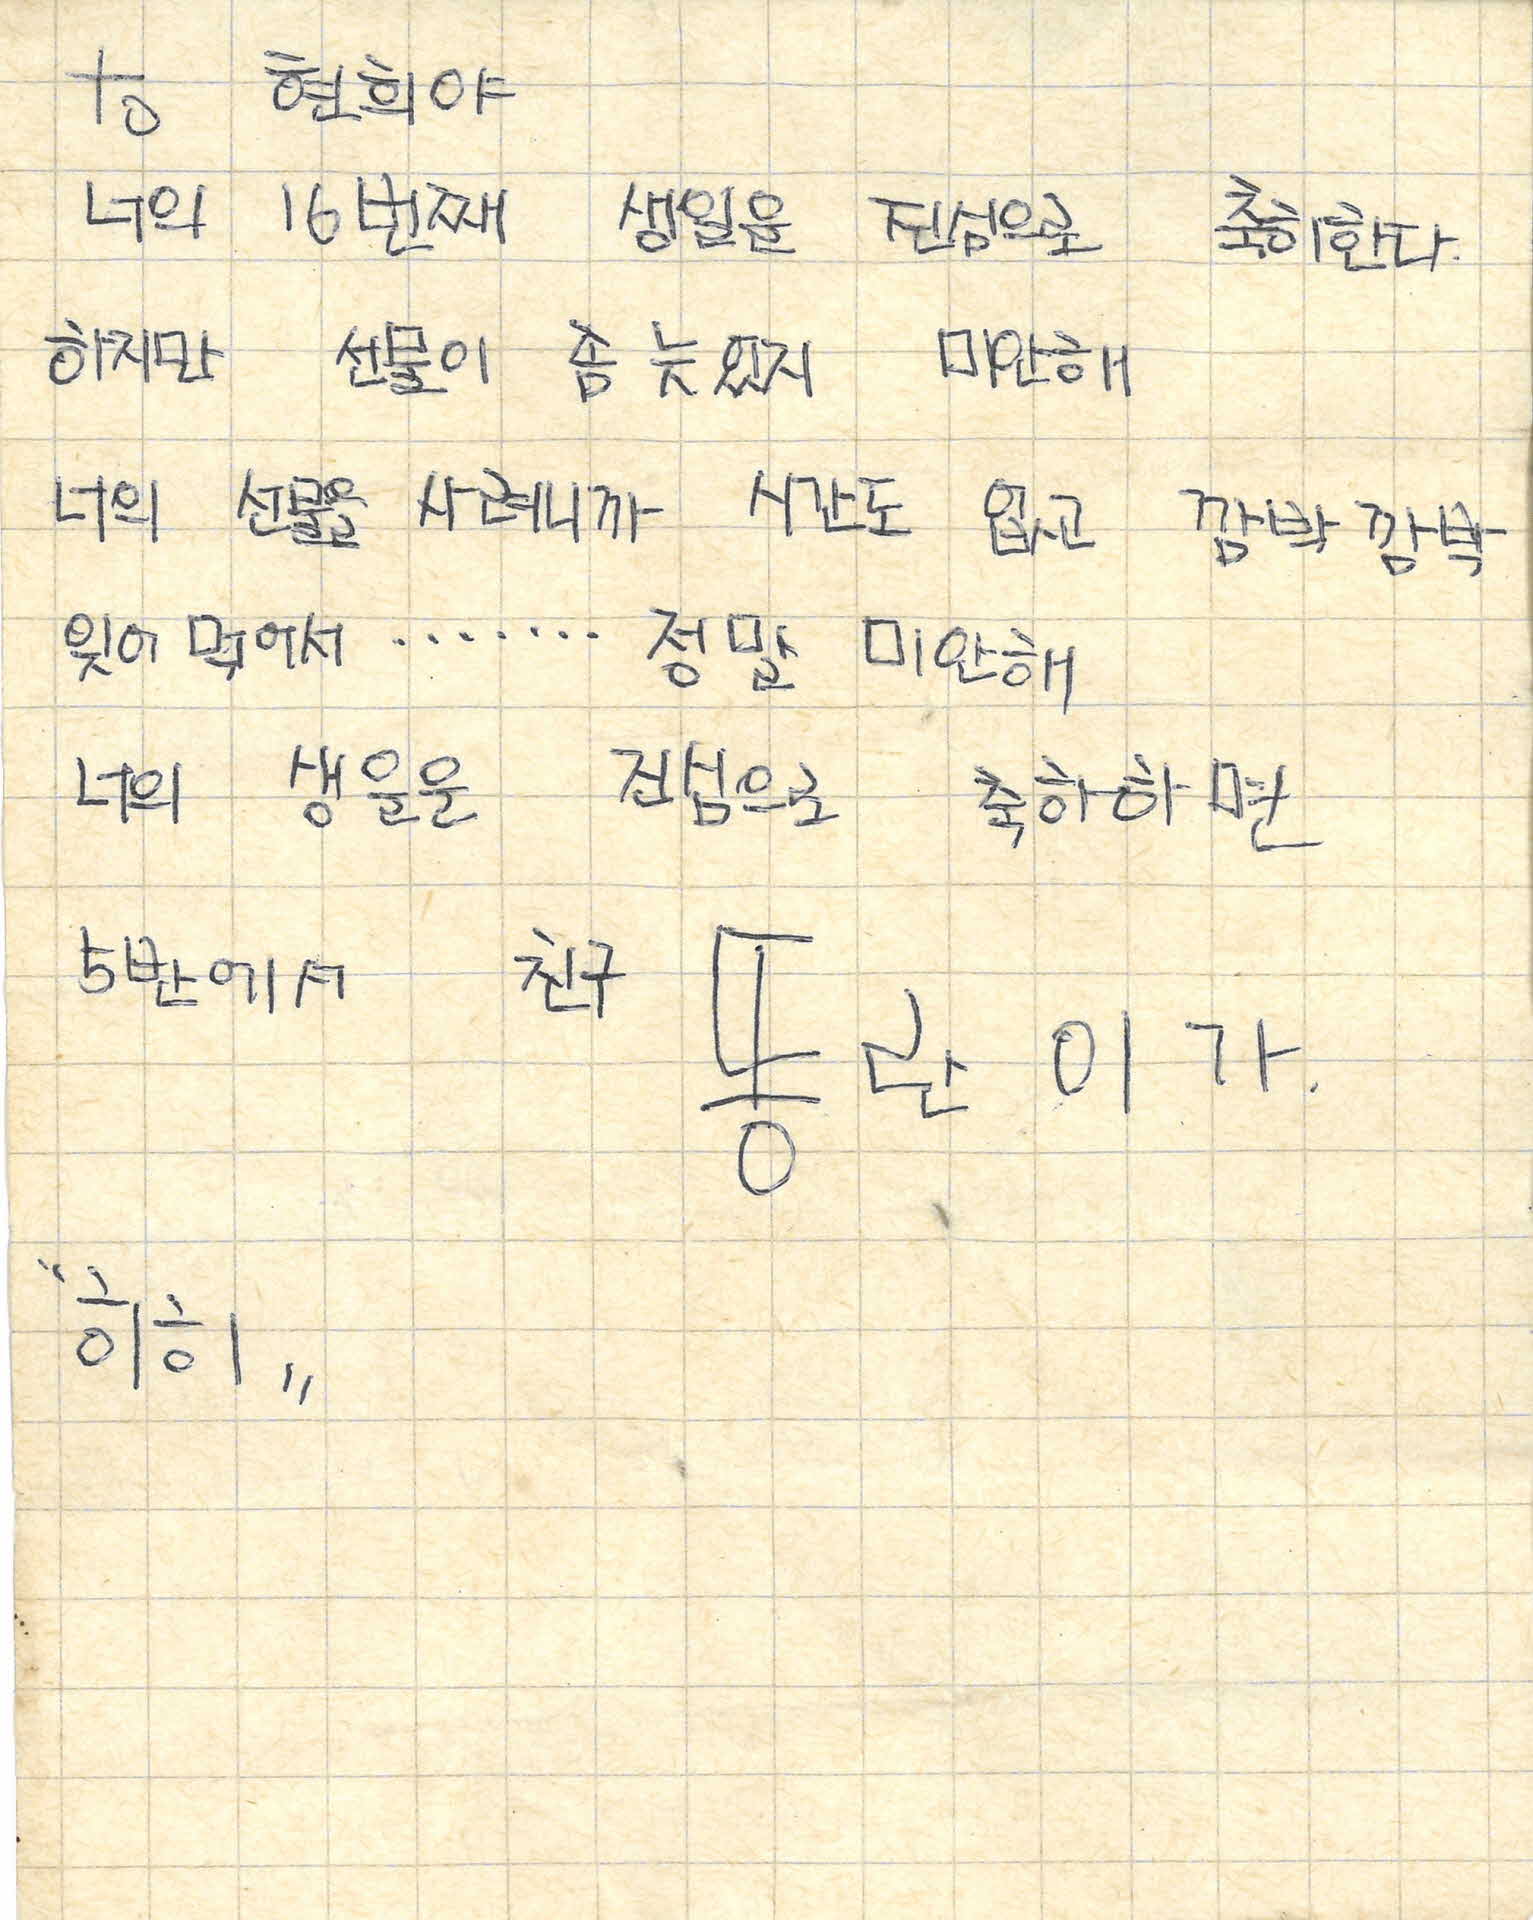 to 현희야
너의 16번째 생일을 진심으로 축하한다.
하지만 선물이 좀 늦었지 미안해
너의 선물을 사례니까 시간도 없고 깜박 깜박
잊어 먹어서 ········ 정말 미안해
너의 생일은 진심으로 축하하면
5반에서 친구 동란이가.
"히히"